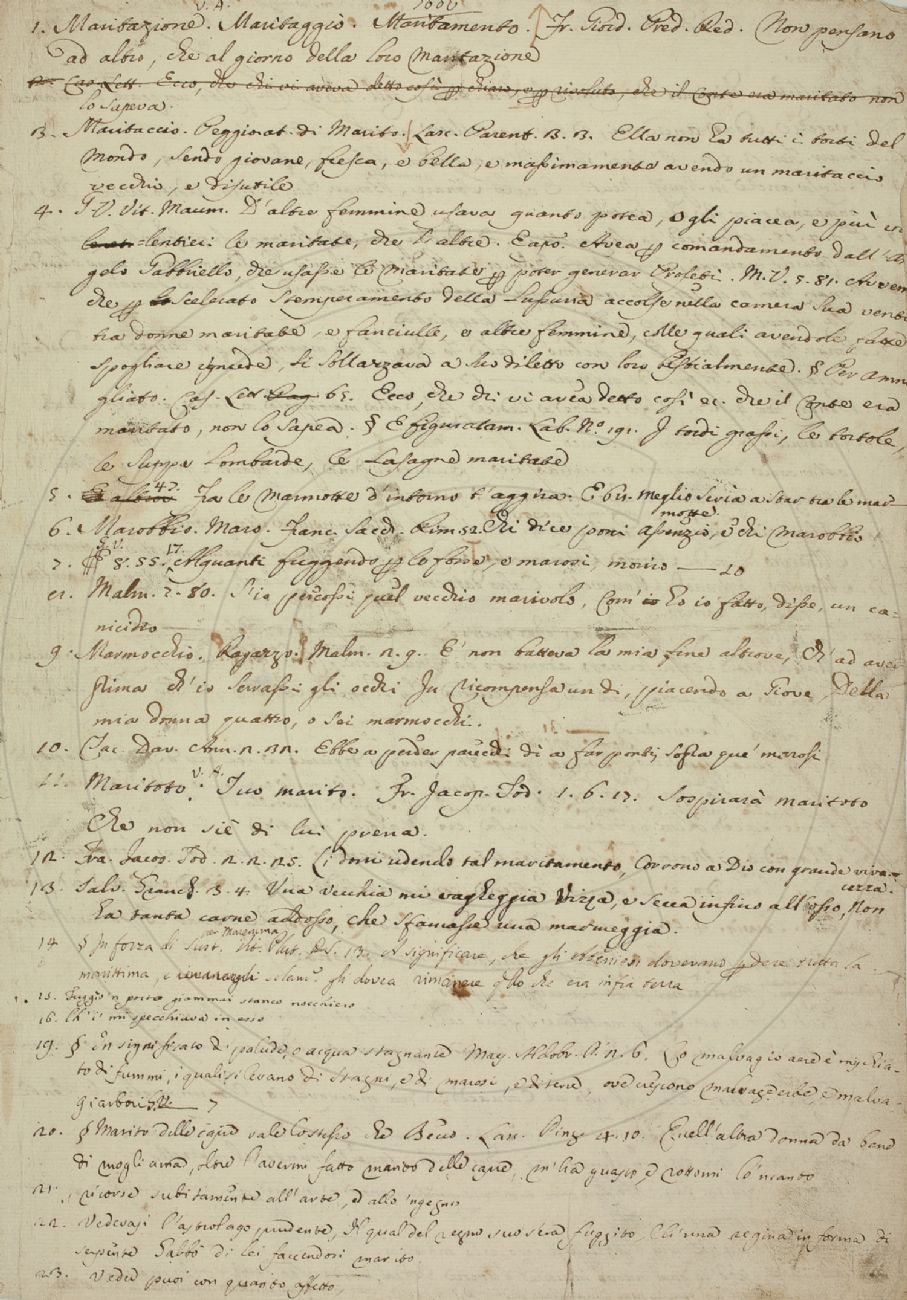 1. Maritazione. V. A. Maritaggio. Maritamento. Fr. Giord. Pred. Red. Non pensano
ad altro, che al giorno della loro maritazione
Cas. Lett. Ecco, che chi vi aveva detto così chiaro, e risoluto, che il Conte era maritato non
lo sapeva.
3. Maritaccio. Peggiorat. di Marito. Lasc. Parent. 3. 3. Ella non ha tutti i torti del
Mondo, sendo giovane, fresca, e bella, e massimamente avendo un maritaccio
vecchio, e disutile
4. Vit. Maum. D'altre femmine usava quanto potea, o gli piacea, e più
volentieri le maritate, che l'altre. E apo. Avea comandamento dall'
gelo Gabbriello, che usasse le maritate poter generar Profeti. M. V. 5. 81.
che scelerato stemperamento della lussuria accolse nella camera sua
tra donne maritate, e fanciulle, e altre femmine, colle quali avendole fatte
spogliare ignude, si sollazzava a suo diletto con loro bestialmente. § Per
gliato. Cas. Lett. 65. Ecco, che chi vi avea detto così ec. che il Conte era
maritato, non lo sapea. § E figuratam. Lab. N.° 191. I tordi grassi, le tortole,
le suppe Lombarde, le lasagne maritate
5. 47. Fra le Marmotte d'intorno t'aggira. E 61. Meglio saria a star tra le mar-
motte.
6. Marobbio. Marr. Franc. Sacch. Rim. 52. Chi dice poni assenzio, e chi marobbio
7. G. V. 8. 55. 17. Alquanti fuggendo lo fosse, e marosi, morio — 10
Malm. 2. 80. S'io percossi quel vecchio marivolo, Com'io ho io fatto, disse, un ca-
nicidio
9. Marmocchio. Ragazzo. Malm. 2. 9. E non batteva la mia fine altrove, Ch' ad
ch' io serrassi gli occhi In ricompensa un dì, piacendo a Giove, Della
mia donna quattro, o sei marmocchi.
10. Tac. Dav. Ann. 2. Ebbe a far ponti, sopra que' marosi
11. Maritoto. V. A. Tuo marito. Fr. Jacop. Tod. 1. 6. 17. Sospirarà maritoto
Che non siè di lui prena.
12. Fra. Jacop. Tod. 2. 2. 25. Li doni udendo tal maritamento, Corrono a Dio con grande viva-
cezza.
13. Salv. Granch. 3. 4. Una vecchia mi vagheggia Vizza, e secca infino all'osso, Non
ha tanta carne addosso, che sfamasse una marmeggia.
14. § In forza di Sust. per Maremma. Vit. Plut. A significare, che gli Ateniesi doverano perdere tutta la
marittima, e solam. gli dovea rimanere quello che era infra terra
15. Fuggio 'n porto giammai stanco nocchiero
16. Ch' i' mi specchiava in esso
19. § In significato di palude, o acqua stagnante. Mae. Aldobr. P. N. 6. Lo malvagio aere è mischia-
to di fummi, i quali si levano di stagni, e di marosi, e di terre, ove crescono malvage erbe, e malva-
gi arbori 7
20. § Marito delle capre vale lo stesso che Becco. Lasc. Pinz. 4. 10. Quell'altra donna da bene
di mogliama, oltre l'avermi fatto marito delle capre, m'ha guasto, e rottomi lo 'ncanto
21. , ricorse subitamente all'arte, ed allo 'ngegno
22. Vedevasi l'astrologo prudente, Il qual del regno suo s'era fuggito, Ch'una regina in forma di
serpente Gabbò di lei facendosi marito.
23. Vedea poi con quanto affetto,